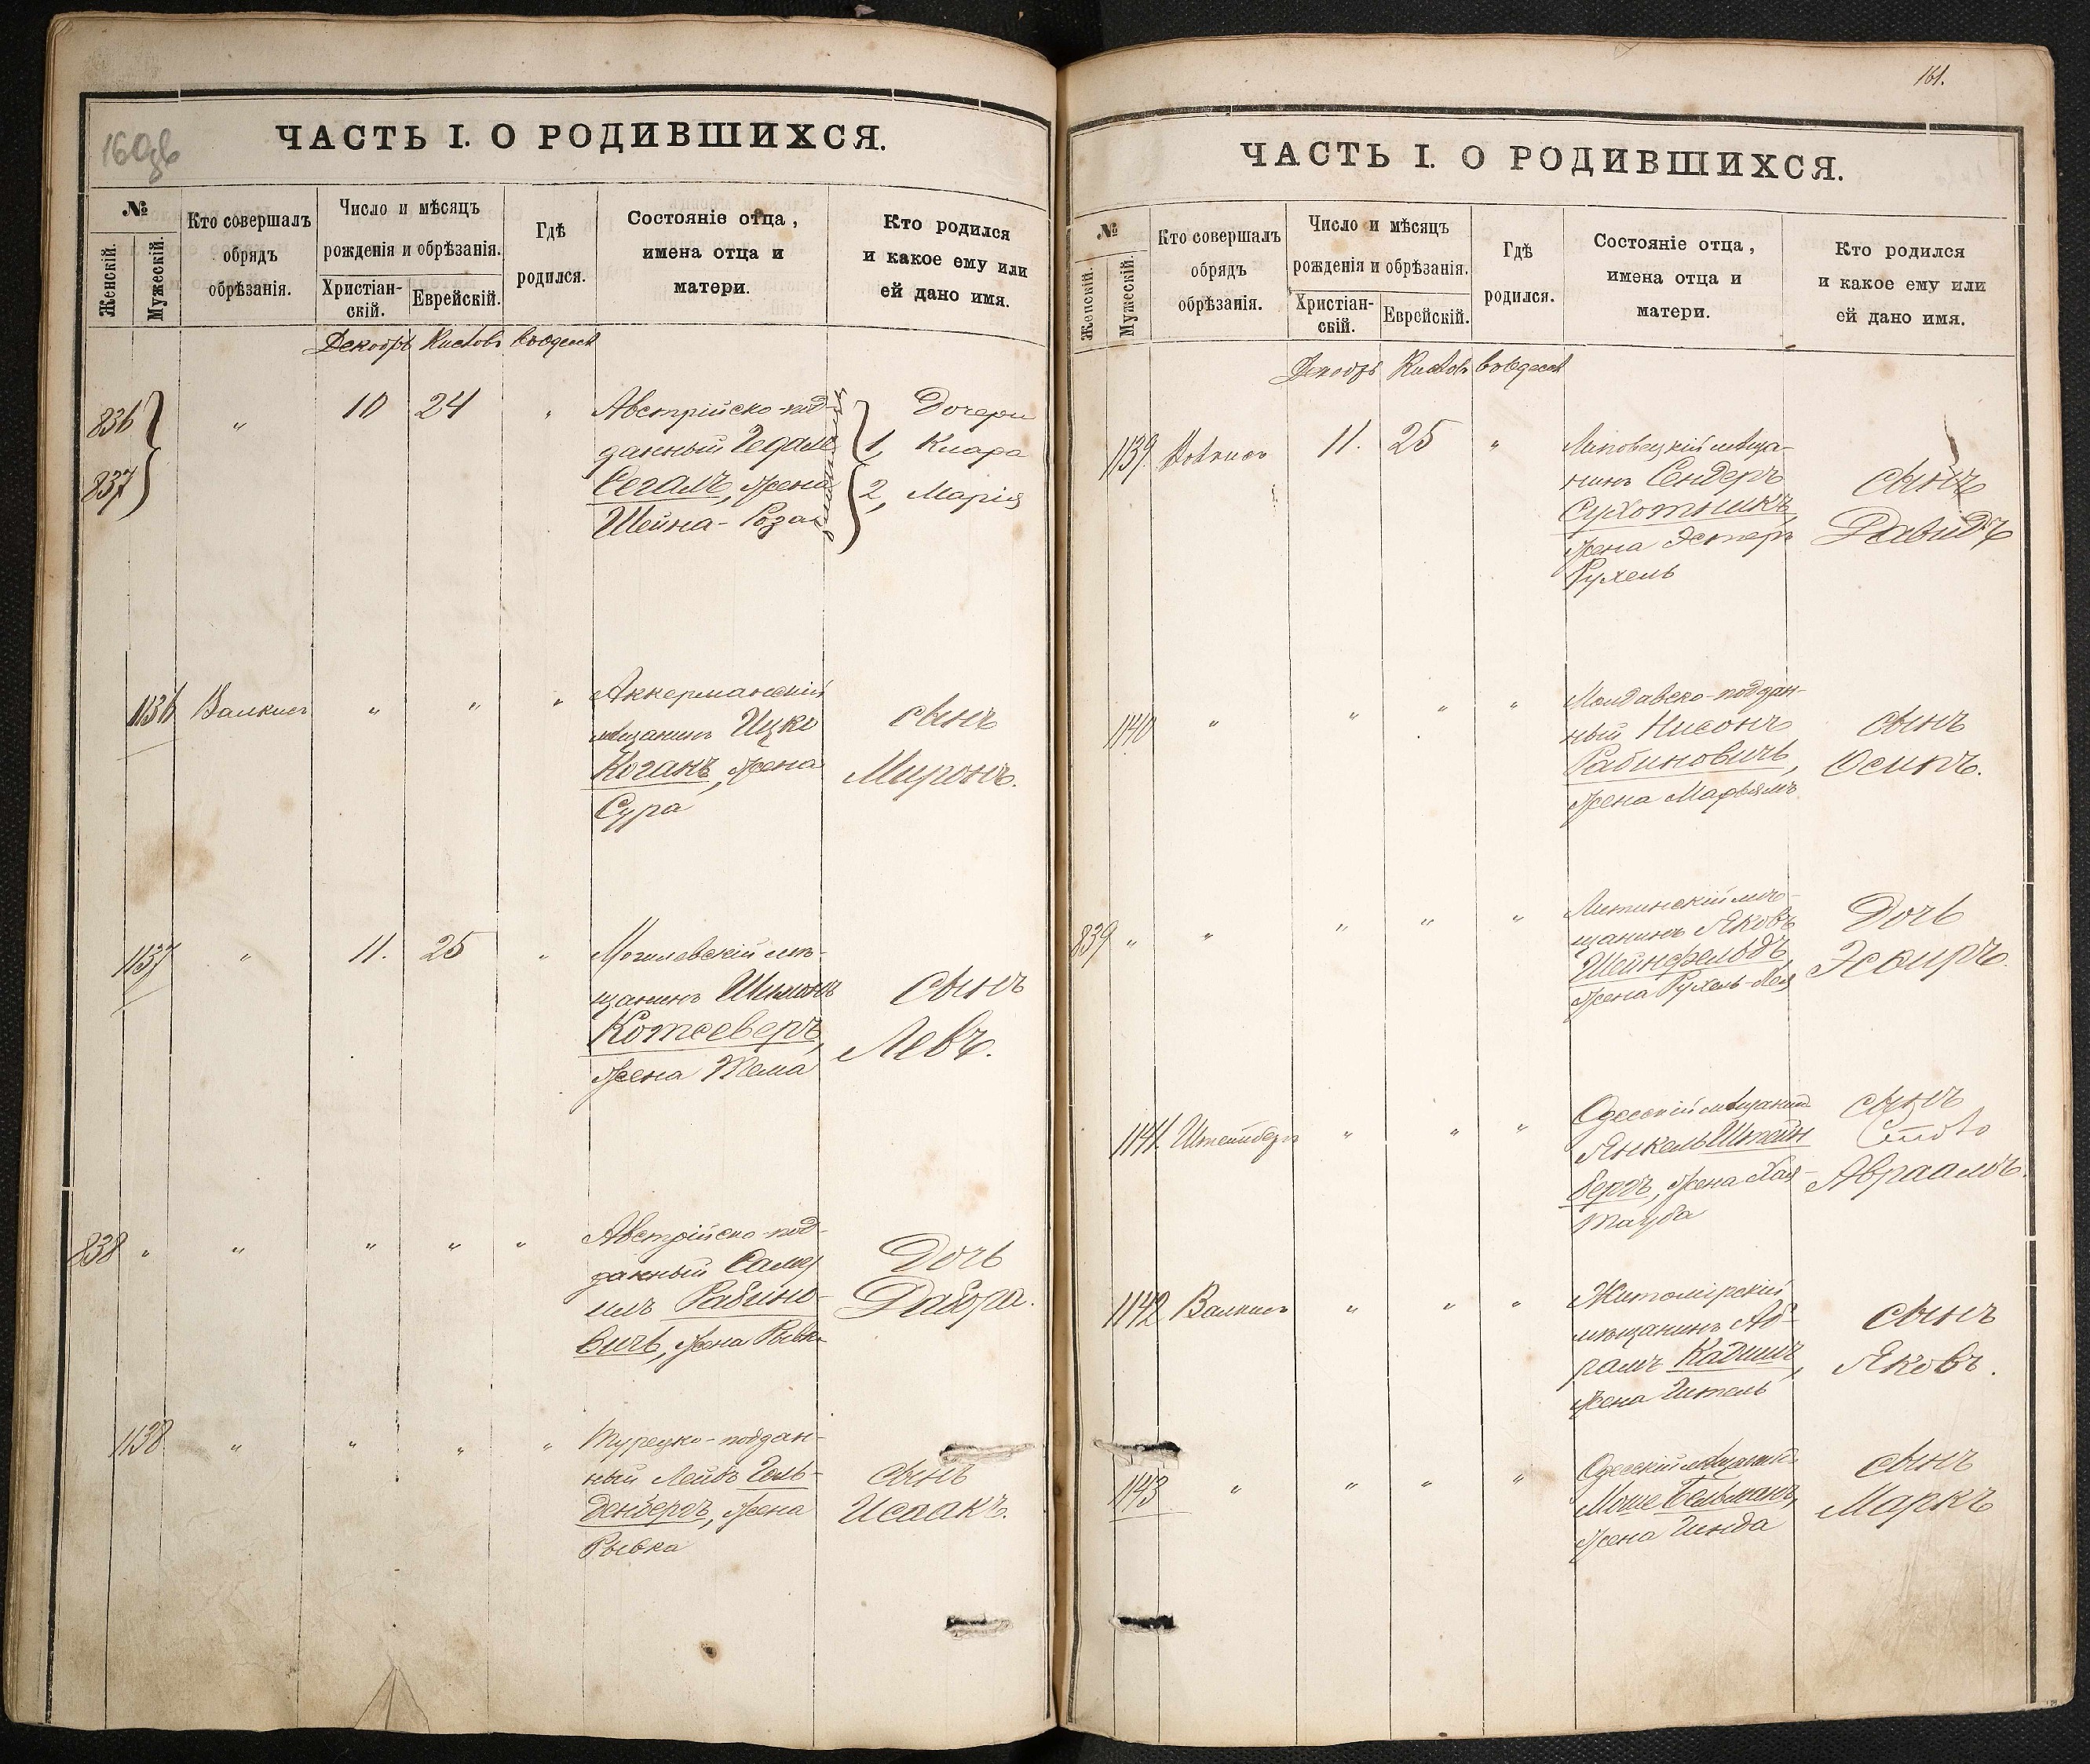 160об
ЧАСТЬ I. О РОДИВШИХСЯ.
№
Женскій.
Мужескій.
Кто совершалъ
обрядъ
обрѣзанія.
Число и мѣсяцъ
рожденія и обрѣзанія.
Христіан-
скій.
Еврейскій.
Гдѣ
родился.
Состояніе отца,
имена отца и
матери.
Кто родился
и какое ему или
ей дано имя.
Декабрь Кислевъ въ Одессѣ
836
837
"
10
24
"
Австрійско-под-
данный Гедале
Сегалъ, жена
Шейна-Роза
Дочери
1, Клара
2, Марія
1136
Валкисъ
"
"
"
Аккерманскій
мѣщанинъ Ицко
Коганъ, жена
Сура
сынъ
Миронъ.
1137
"
11.
25
"
Могилевскій мѣ-
щанинъ Шимонъ
Котсеверъ,
жена Тема
Сынъ
Левъ.
838
"
"
"
"
"
Австрійско-под-
данный Саму
илъ Рабино-
вичъ, жена Рывка
Дочь
Дабора.
1138
"
"
"
"
Турецко-поддан-
ный Лейбъ Голь-
денбергъ, жена
Рывка
сынъ
Исаакъ.
161.
ЧАСТЬ I. О РОДИВШИХСЯ.
№
Женскій.
Мужескій.
Кто совершалъ
обрядъ
обрѣзанія.
Число и мѣсяцъ
рожденія и обрѣзанія.
Христіан-
скій.
Еврейскій.
Гдѣ
родился.
Состояніе отца,
имена отца и
матери.
Кто родился
и какое ему или
ей дано имя.
Декабрь Кислевъ въ Одессѣ
1139.
11.
25
"
Липовецкій мѣща-
нинъ Сендеръ
Сухотникъ,
жена Эстеръ
Рухель
сынъ
Давидъ
1140
"
"
"
"
Молдавско-поддан-
ный Нисонъ
Рабиновичъ,
жена Марьямъ
сынъ
Осипъ.
839
"
"
"
"
"
Литинскій мѣ-
щанинъ Яковъ
Шейнфельдъ
жена Рухель-Лея
Дочь
Эсѳирь.
1141.
Штейнбергъ
"
"
"
Одесскій мѣщанинъ
Янкель Штейн
бергъ, жена Хая-
Тауба
сынъ
Авраамъ.
1142
Валкисъ
"
"
"
Житомірскій
мѣщанинъ Аб-
рамъ Кадишъ,
жена Гитель
сынъ
Яковъ.
1143
"
"
"
"
Одесскій мѣщанинъ
Моше Бельманъ,
жена Гинда
сынъ
Маркъ